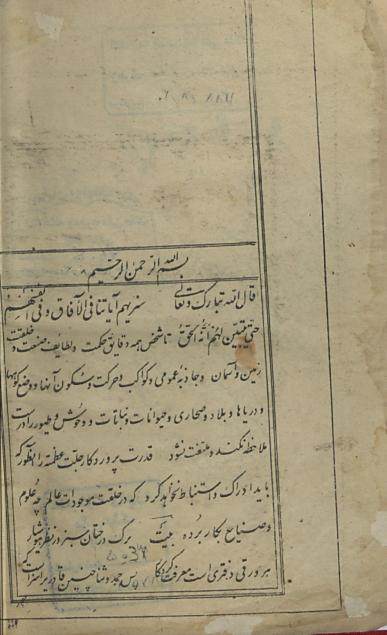 بسم الله الرحمن الرحیم
قال الله تبارک وتعالی سنریهم آیاتنا فی الآفاق وفی انفسهم
حتی یتبین لهم انه الحق تا شخص همه دقایق حکمت ولطایف صنعت و خلقت
زمین وآسمان وجاذبه عمومی وکواکب وحرکت وسکون آنها ووضع کوهها
و دریاها و بلاد وصحاری وحیوانات ونباتات و وحوش و طیور را درست
ملاحظه نکند و ملتفت نشود قدرت پروردگار جلت عظمته را بطوریکه
باید ادراک و استنباط نخواهد کرد که در خلقت موجودات عالم چه علوم
وصنایع بکار برده بیت برگ درختان سبز در نظر هوشیار
هر ورقی دفتری است معرفت کردگار پس حمد وثنا چنین قادر بر